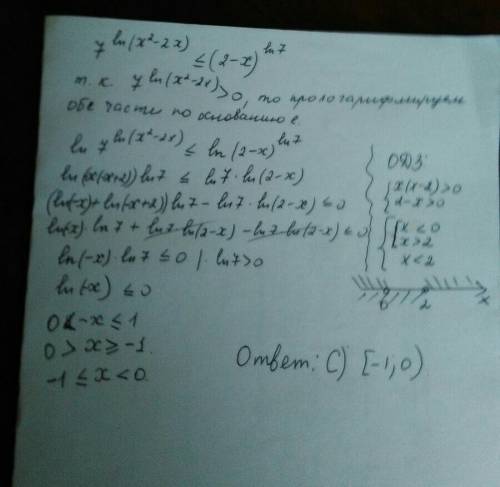 7^ln(x²-2x) ≤ (2-x)^ln7
т.к. 7^ln(x²-2x) > 0, то прологарифмируем
обе части по основанию e.
ln 7^ln(x²-2x) ≤ ln(2-x)^ln7
ln(-x(-x+2)) ln7 ≤ ln7·ln(2-x)
(ln(-x)+ln(-x+2)) ln7 - ln7·ln(2-x) ≤ 0
ln(-x)·ln7 + ln7·ln(2-x) - ln7·ln(2-x) ≤ 0
ln(-x)·ln7 ≤ 0 | : ln7>0
ln(-x) ≤ 0
0 < -x ≤ 1
0 > x ≥ -1.
-1 ≤ x < 0.
ОДЗ:
x(x-2)>0
2-x>0
x<0
x>2
x<2
0 2 x
Ответ: C) [-1; 0)